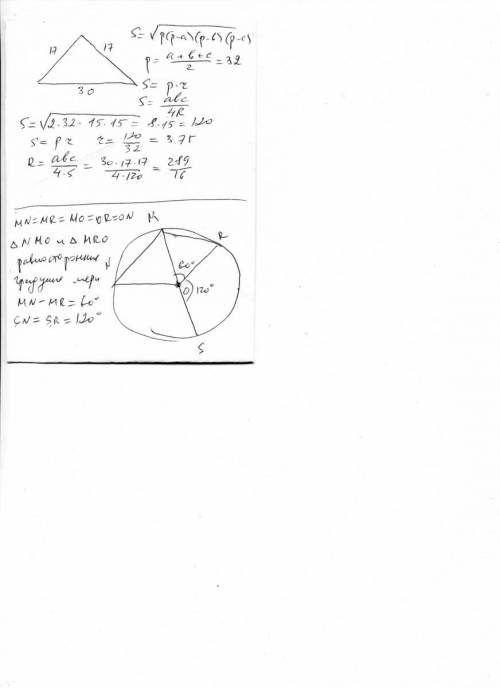 17 17
30
S = √p(p-a)(p-b)(p-c)
p = (a+b+c)/2 = 32
S = p·r
S = abc/4R
S = √2·32·15·15 = 8·15 = 120
S = pr r = 120/32 = 3.75
R = abc/4·S = 30·17·17/4·120 = 289/16
MN = MR = MO = OR = ON
△NMO и △MRO
равносторонние
градусные меры
MN - MR = 60°
SN = SR = 120°
M
R
N
60°
O 120°
S